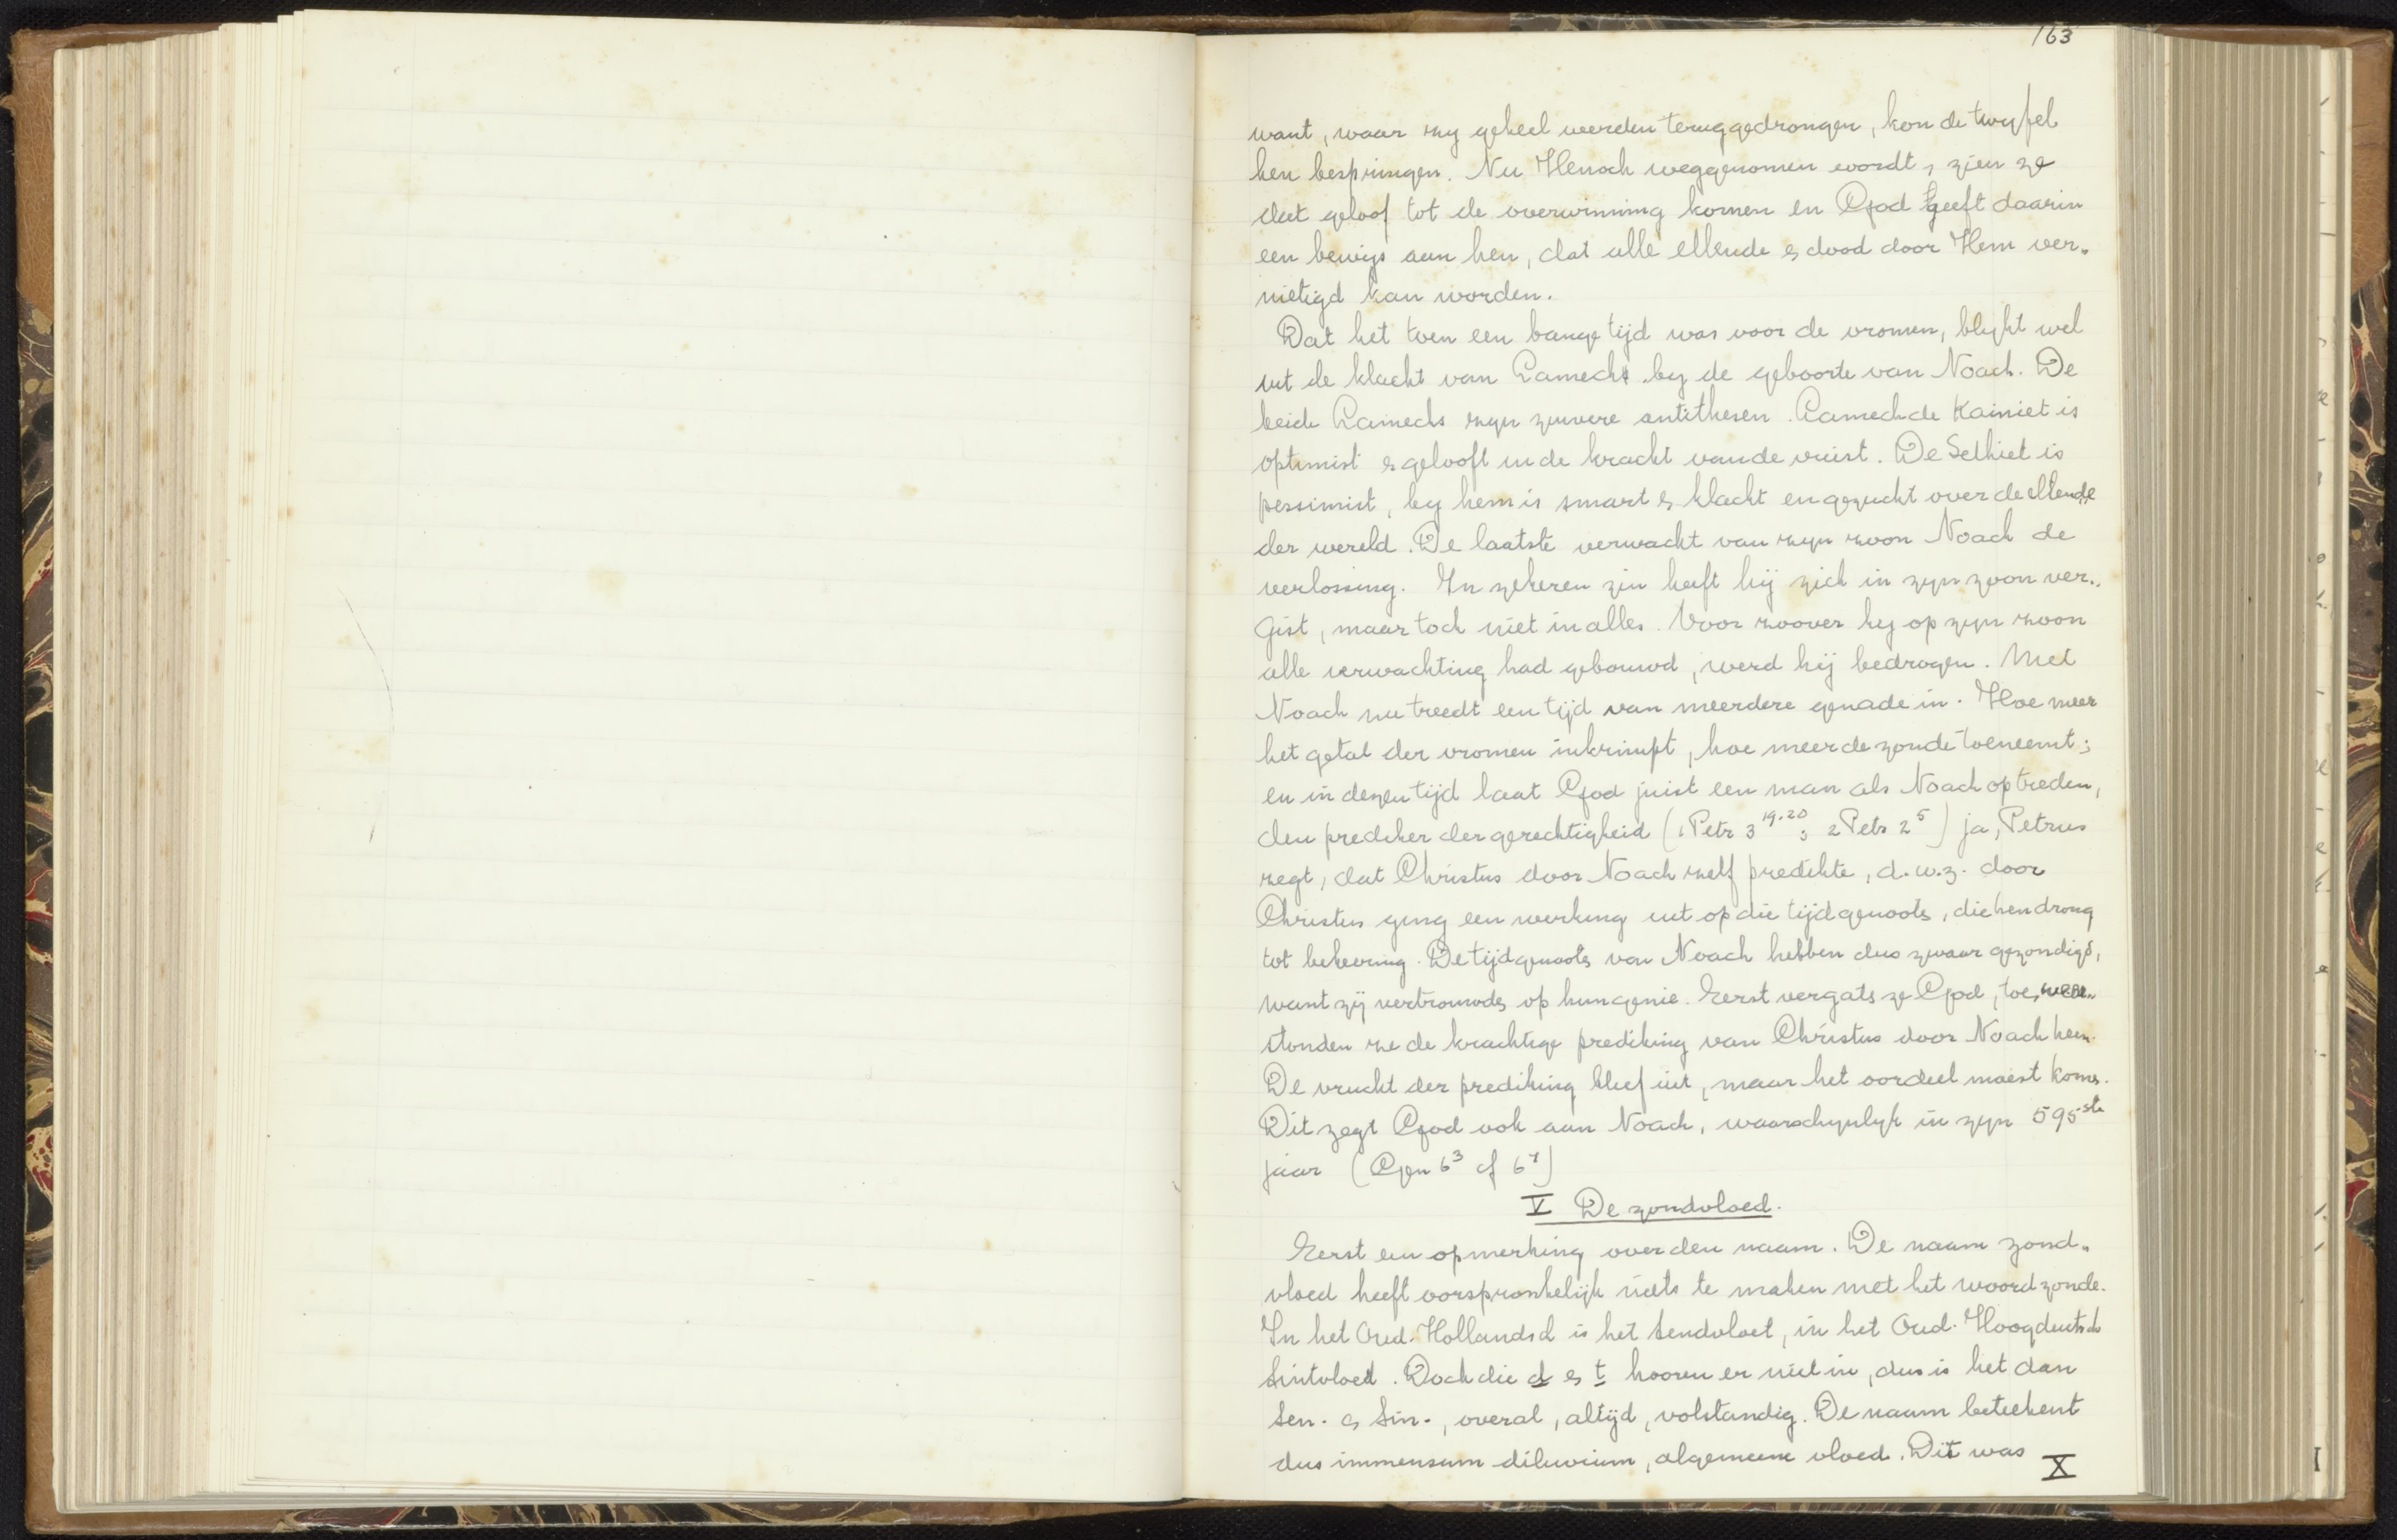 163
want, waar zij geheel werden teruggedrongen, kon de twyfel
hen bespringen. Nu Henoch weggenomen wordt, zien ze
dat geloof tot de overwinning komen en God geeft daarin
een bewijs aan hen, dat alle ellende & dood door Hem ver-
nietigd kan worden.
Dat het toen een bange tijd was voor de vromen, blykt wel
uit de klacht van Lamech by de geboorte van Noach. De
beide Lamechs zyn zuivere antithesen. Lamech de Kainiet is
optimist & gelooft in de kracht van de vuist. De Sethiet is
pessimist, by hem is smart & klacht en gezucht over de ellende
der wereld. De laatste verwacht van zyn zoon Noach de
verlossing. In zekeren zin heeft hij zich in zyn zoon ver-
gist, maar toch niet in alles. Voor zoover hy op zyn zoon
alle verwachting had gebouwd, werd hij bedrogen. Met
Noach nu treedt een tijd van meerdere genade in. Hoe meer
het getal der vromen inkrimpt, hoe meer de zonde toeneemt;
en in dezen tijd laat God juist een man als Noach optreden,
den prediker der gerechtigheid (1 Petr 3 19.20; 2 Petr 2 5) ja, Petrus
zegt, dat Christus door Noach zelf predikte, d.w.z. door
Christus ging een werking uit op die tijdgenoots, die hen drong
tot bekeering. De tijdgenoots van Noach hebben dus zwaar gezondigd,
want zij vertrouwde op hun genie. Eerst vergats ze God, toe weer-
stonden ze de krachtige prediking van Christus door Noach heen.
De vrucht der prediking bleef uit, maar het oordeel moest kome.
Dit zegt God ook aan Noach, waarschynlyk in zyn 595ste
jaar (Gen 6 3 cf 6 7)
V De zondvloed.
Eerst een opmerking over den naam. De naam zond-
vloed heeft oorspronkelijk niets te maken met het woord zonde.
In het Oud-Hollandsch is het sendvloet, in het Oud-Hoogduitsch
Sintvloed. Doch die d & t hooren er niet in, dus is het dan
Sen- & Sin-, overal, altijd, volstandig. De naam beteekent
dus immensum diluvium, algemeene vloed. Dit was
X